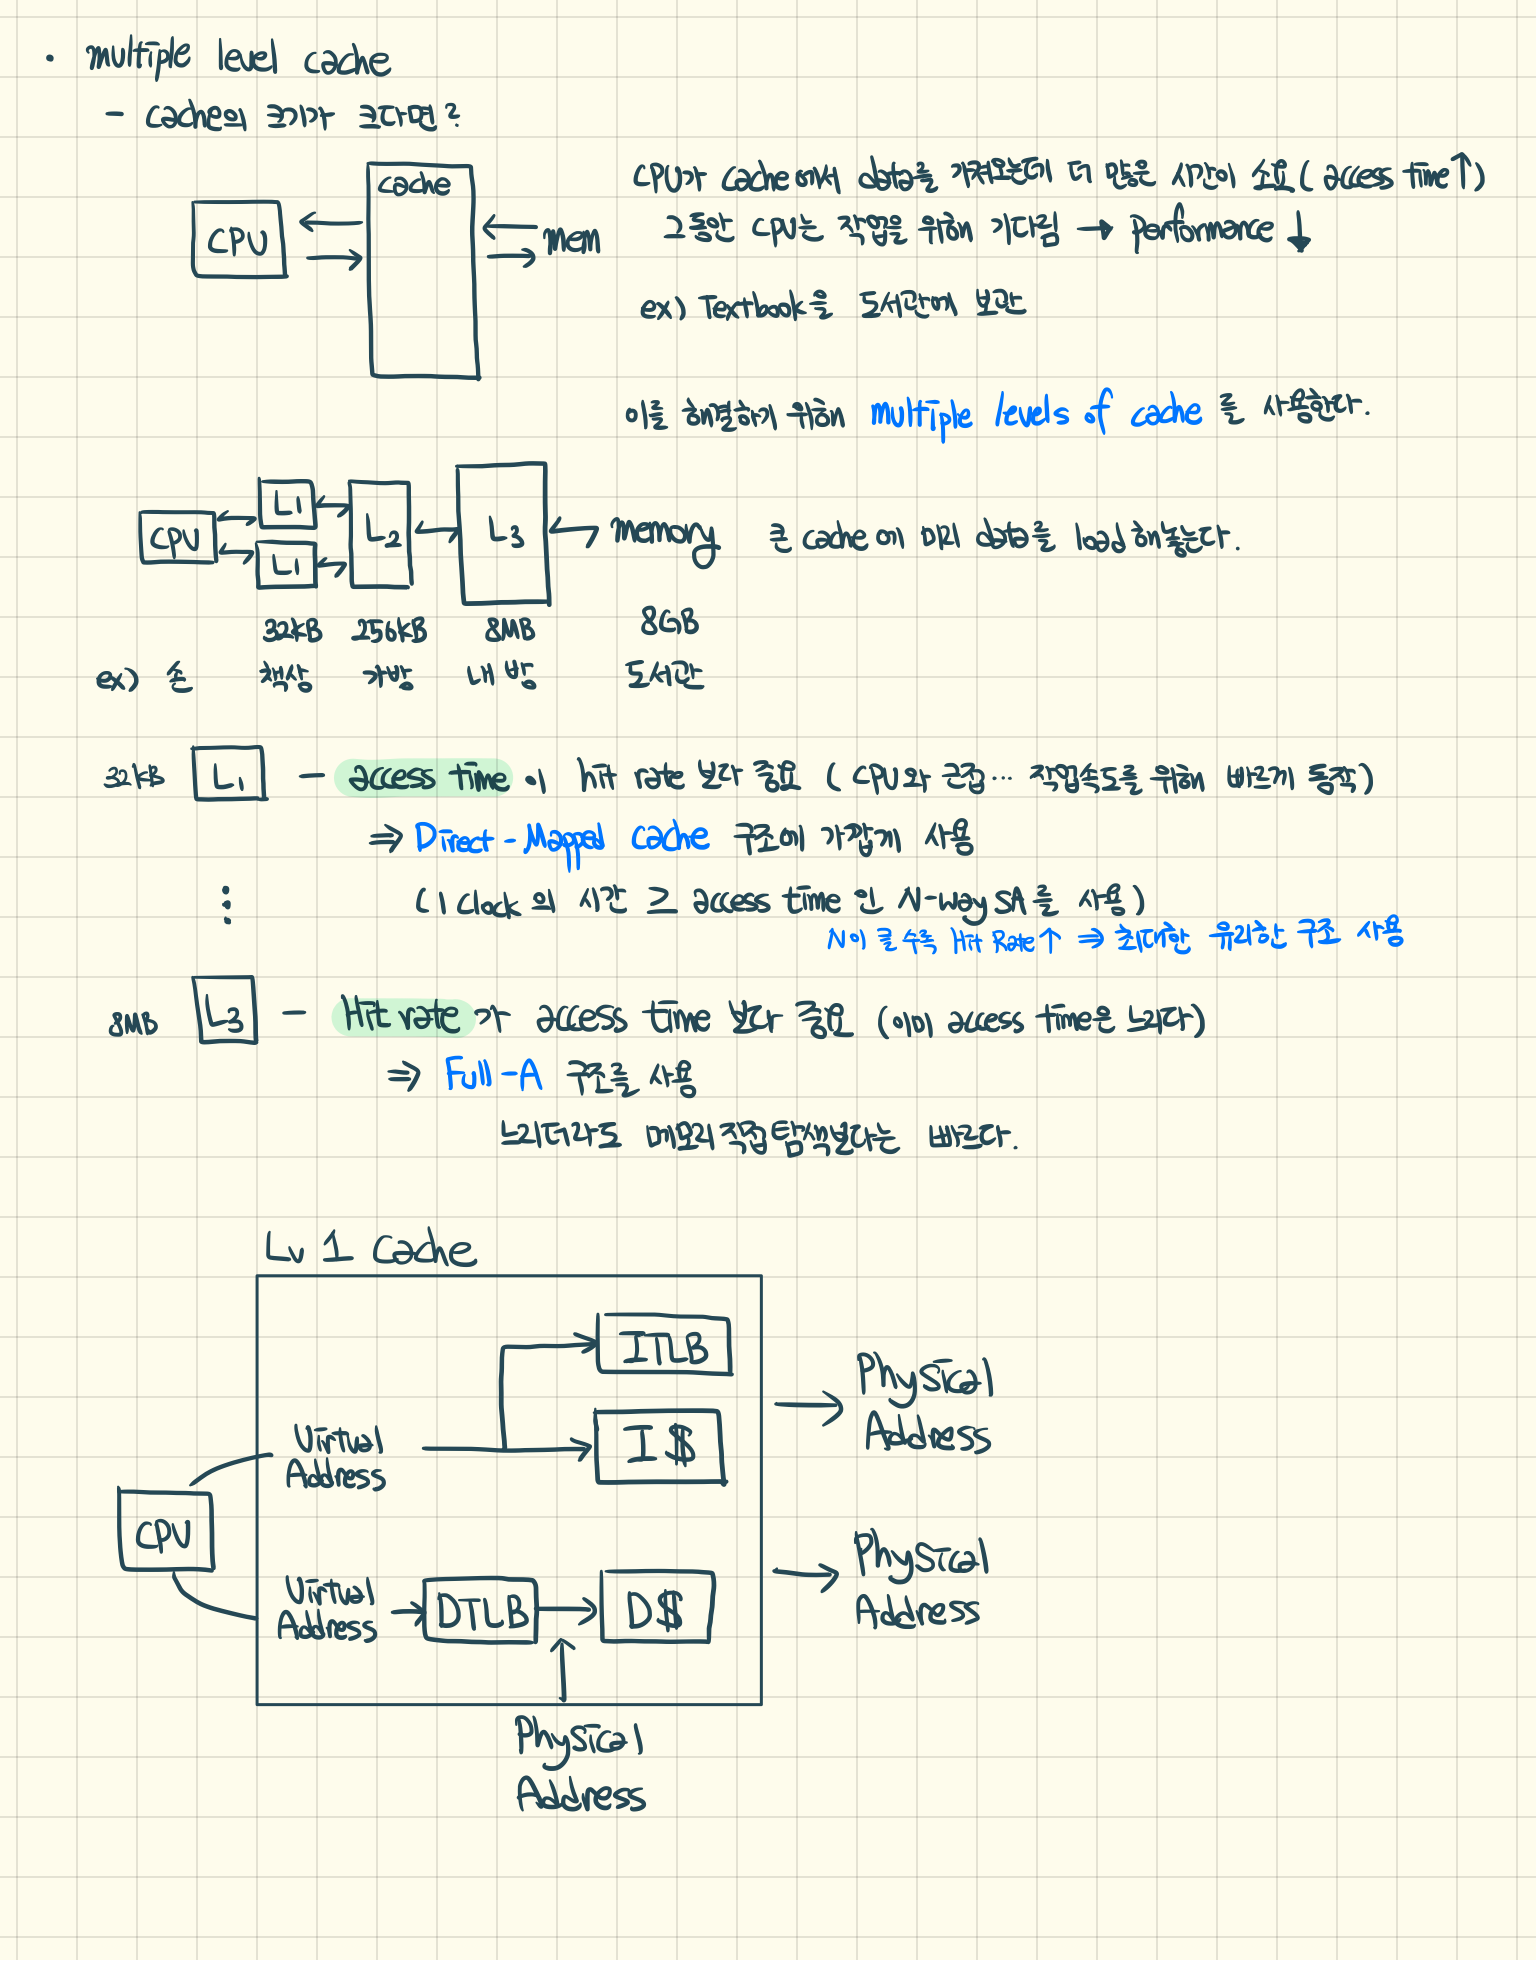 · multiple level cache
- cache의 크기가 크다면?
cache
CPU
mem
CPU가 cache에서 data를 가져오는데 더 많은 시간이 소요 ( access time↑)
그동안 CPU는 작업을 위해 기다림 → performance ↓
ex) Textbook을 도서관에 보관
이를 해결하기 위해 multiple levels of cache 를 사용한다.
CPU L1 L1 L2 L3 memory
큰 cache에 미리 data를 load해놓는다.
32KB 256KB 8MB 8GB
ex) 손 책상 가방 내 방 도서관
32KB L1 - access time이 hit rate 보다 중요 ( CPU와 근접... 작업속도를 위해 빠르게 동작)
⇒ Direct-Mapped cache 구조에 가깝게 사용
( 1 clock 의 시간 ≥ access time 인 N-way SA를 사용 )
N이 클 수록 Hit Rate↑ ⇒ 최대한 유리한 구조 사용
8MB L3 - Hit rate가 access time 보다 중요 (이미 access time은 느리다)
⇒ Full-A 구조를 사용
느리더라도 메모리 직접 탐색보다는 빠르다.
Lv 1 cache
ITLB
Virtual
Address
I$
Physical
Address
CPU
Virtual
Address
DTLB
D$
Physical
Address
Physical
Address